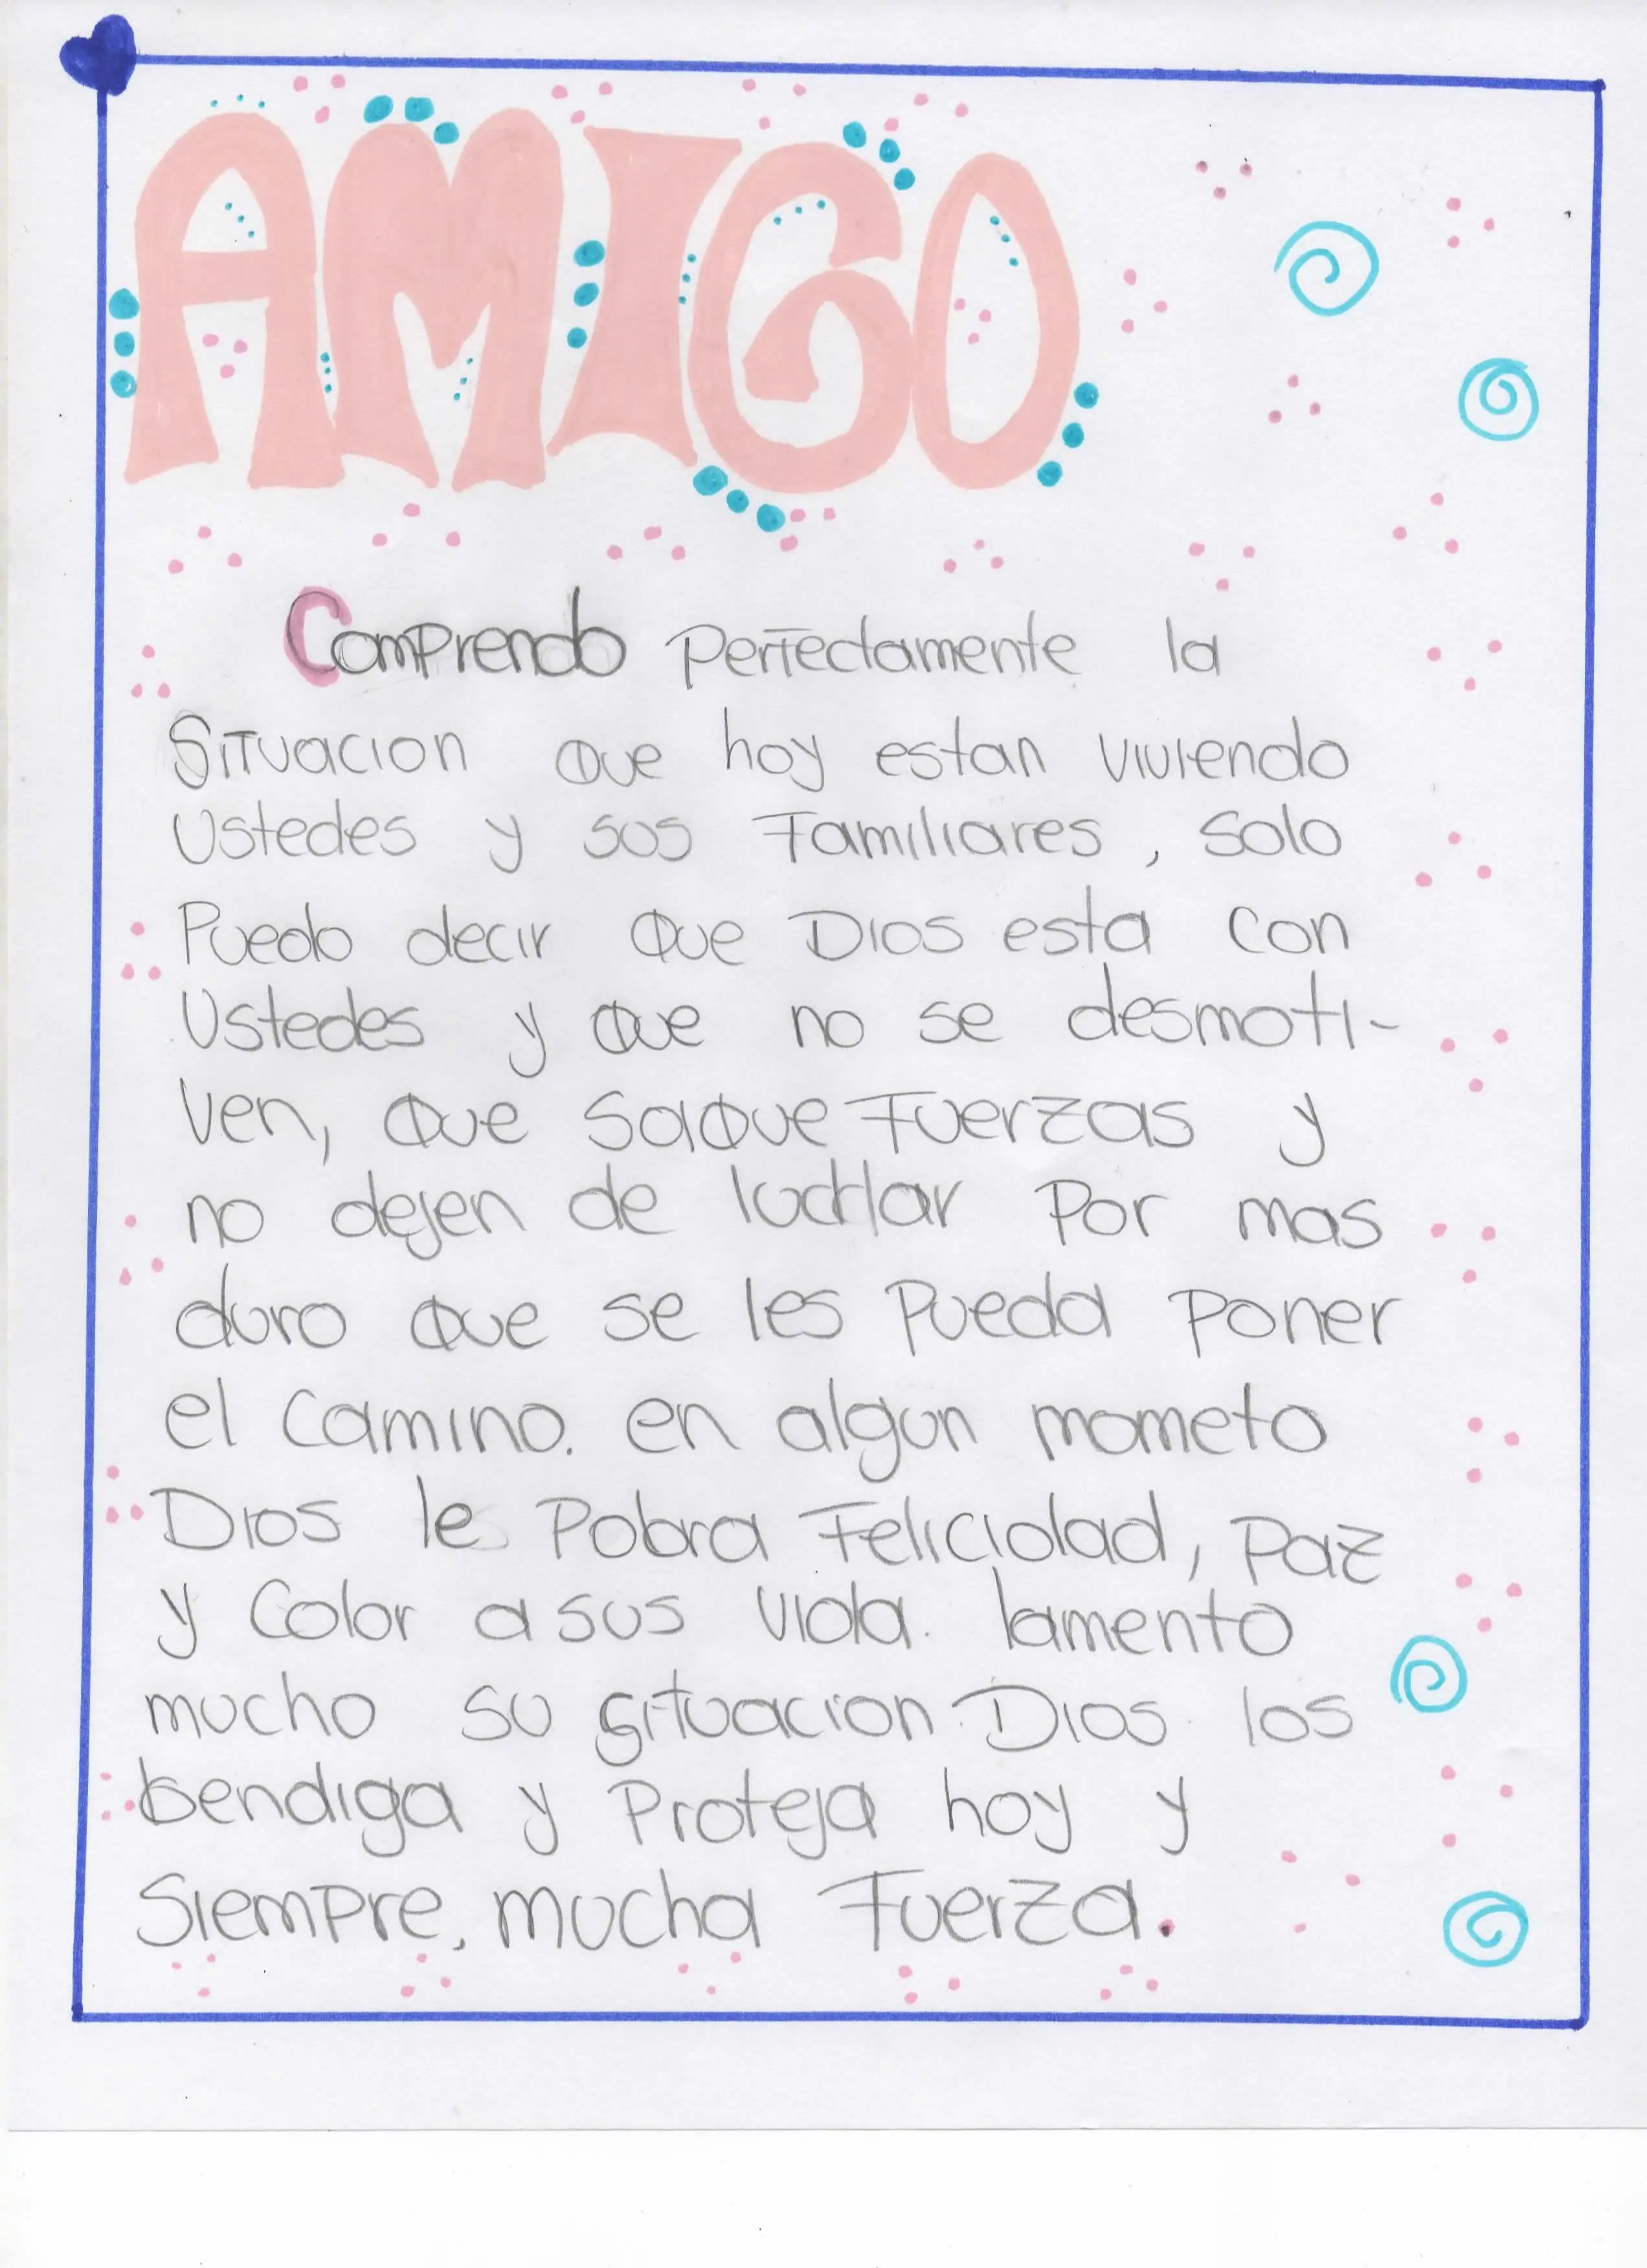 AMIGO
Comprendo perfectamente la
Situacion que hoy estan viviendo
Ustedes y sus Familiares, solo
Puedo decir que Dios esta con
Ustedes y que no se desmoti-
ven, que saque Fuerzas y
no dejen de luchar Por mas
duro que se les pueda poner
el camino. en algun mometo
Dios le Pobra Felicidad, Paz
y Color a sus vida. lamento
mucho su situacion. Dios los
bendiga y Proteja hoy y
Siempre, mucha Fuerza.